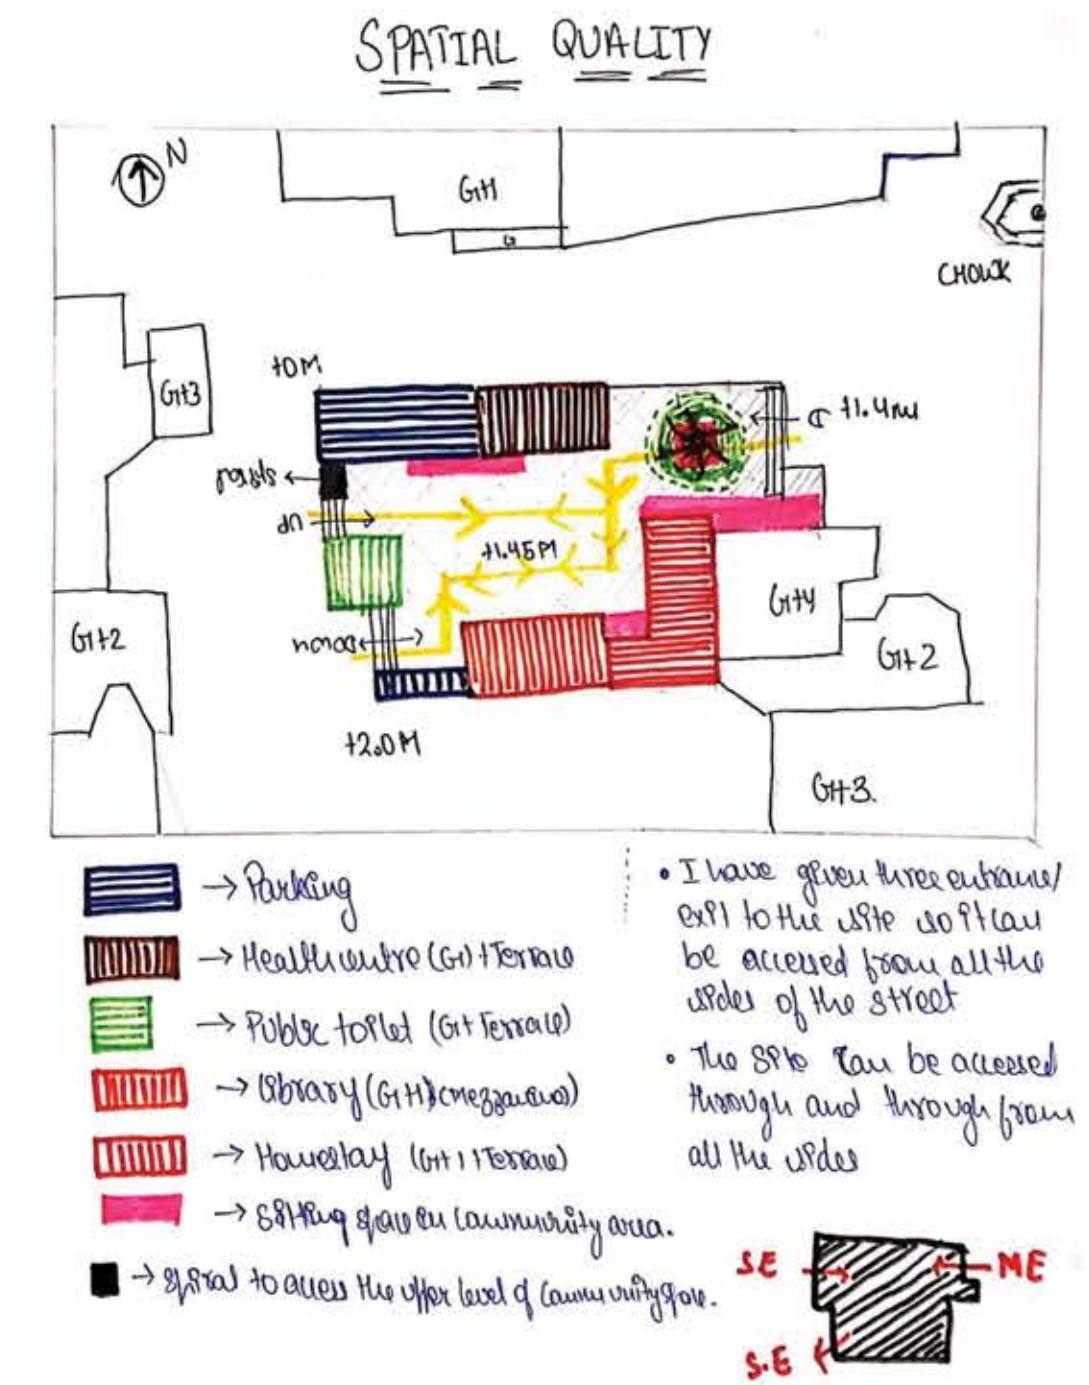 SPATIAL QUALITY
N
G+1
G
CHOWK
G+3
+0M
+1.4M
spiral
UP
+1.45M
G+4
G+2
G+2
Down
+2.0M
G+3.
→ Parking
→ Health centre (G) + Terrace
→ Public toilet (G+ Terrace)
→ Library (G+1) (mezzanine)
→ Homestay (G+1+Terrace)
→ Sitting space in community area.
→ spiral to access the upper level of community space.
• I have given three entrance/
exit to the site so it can
be accessed from all the
sides of the street
• The site can be accessed
through and through from
all the sides
SE
ME
S.E